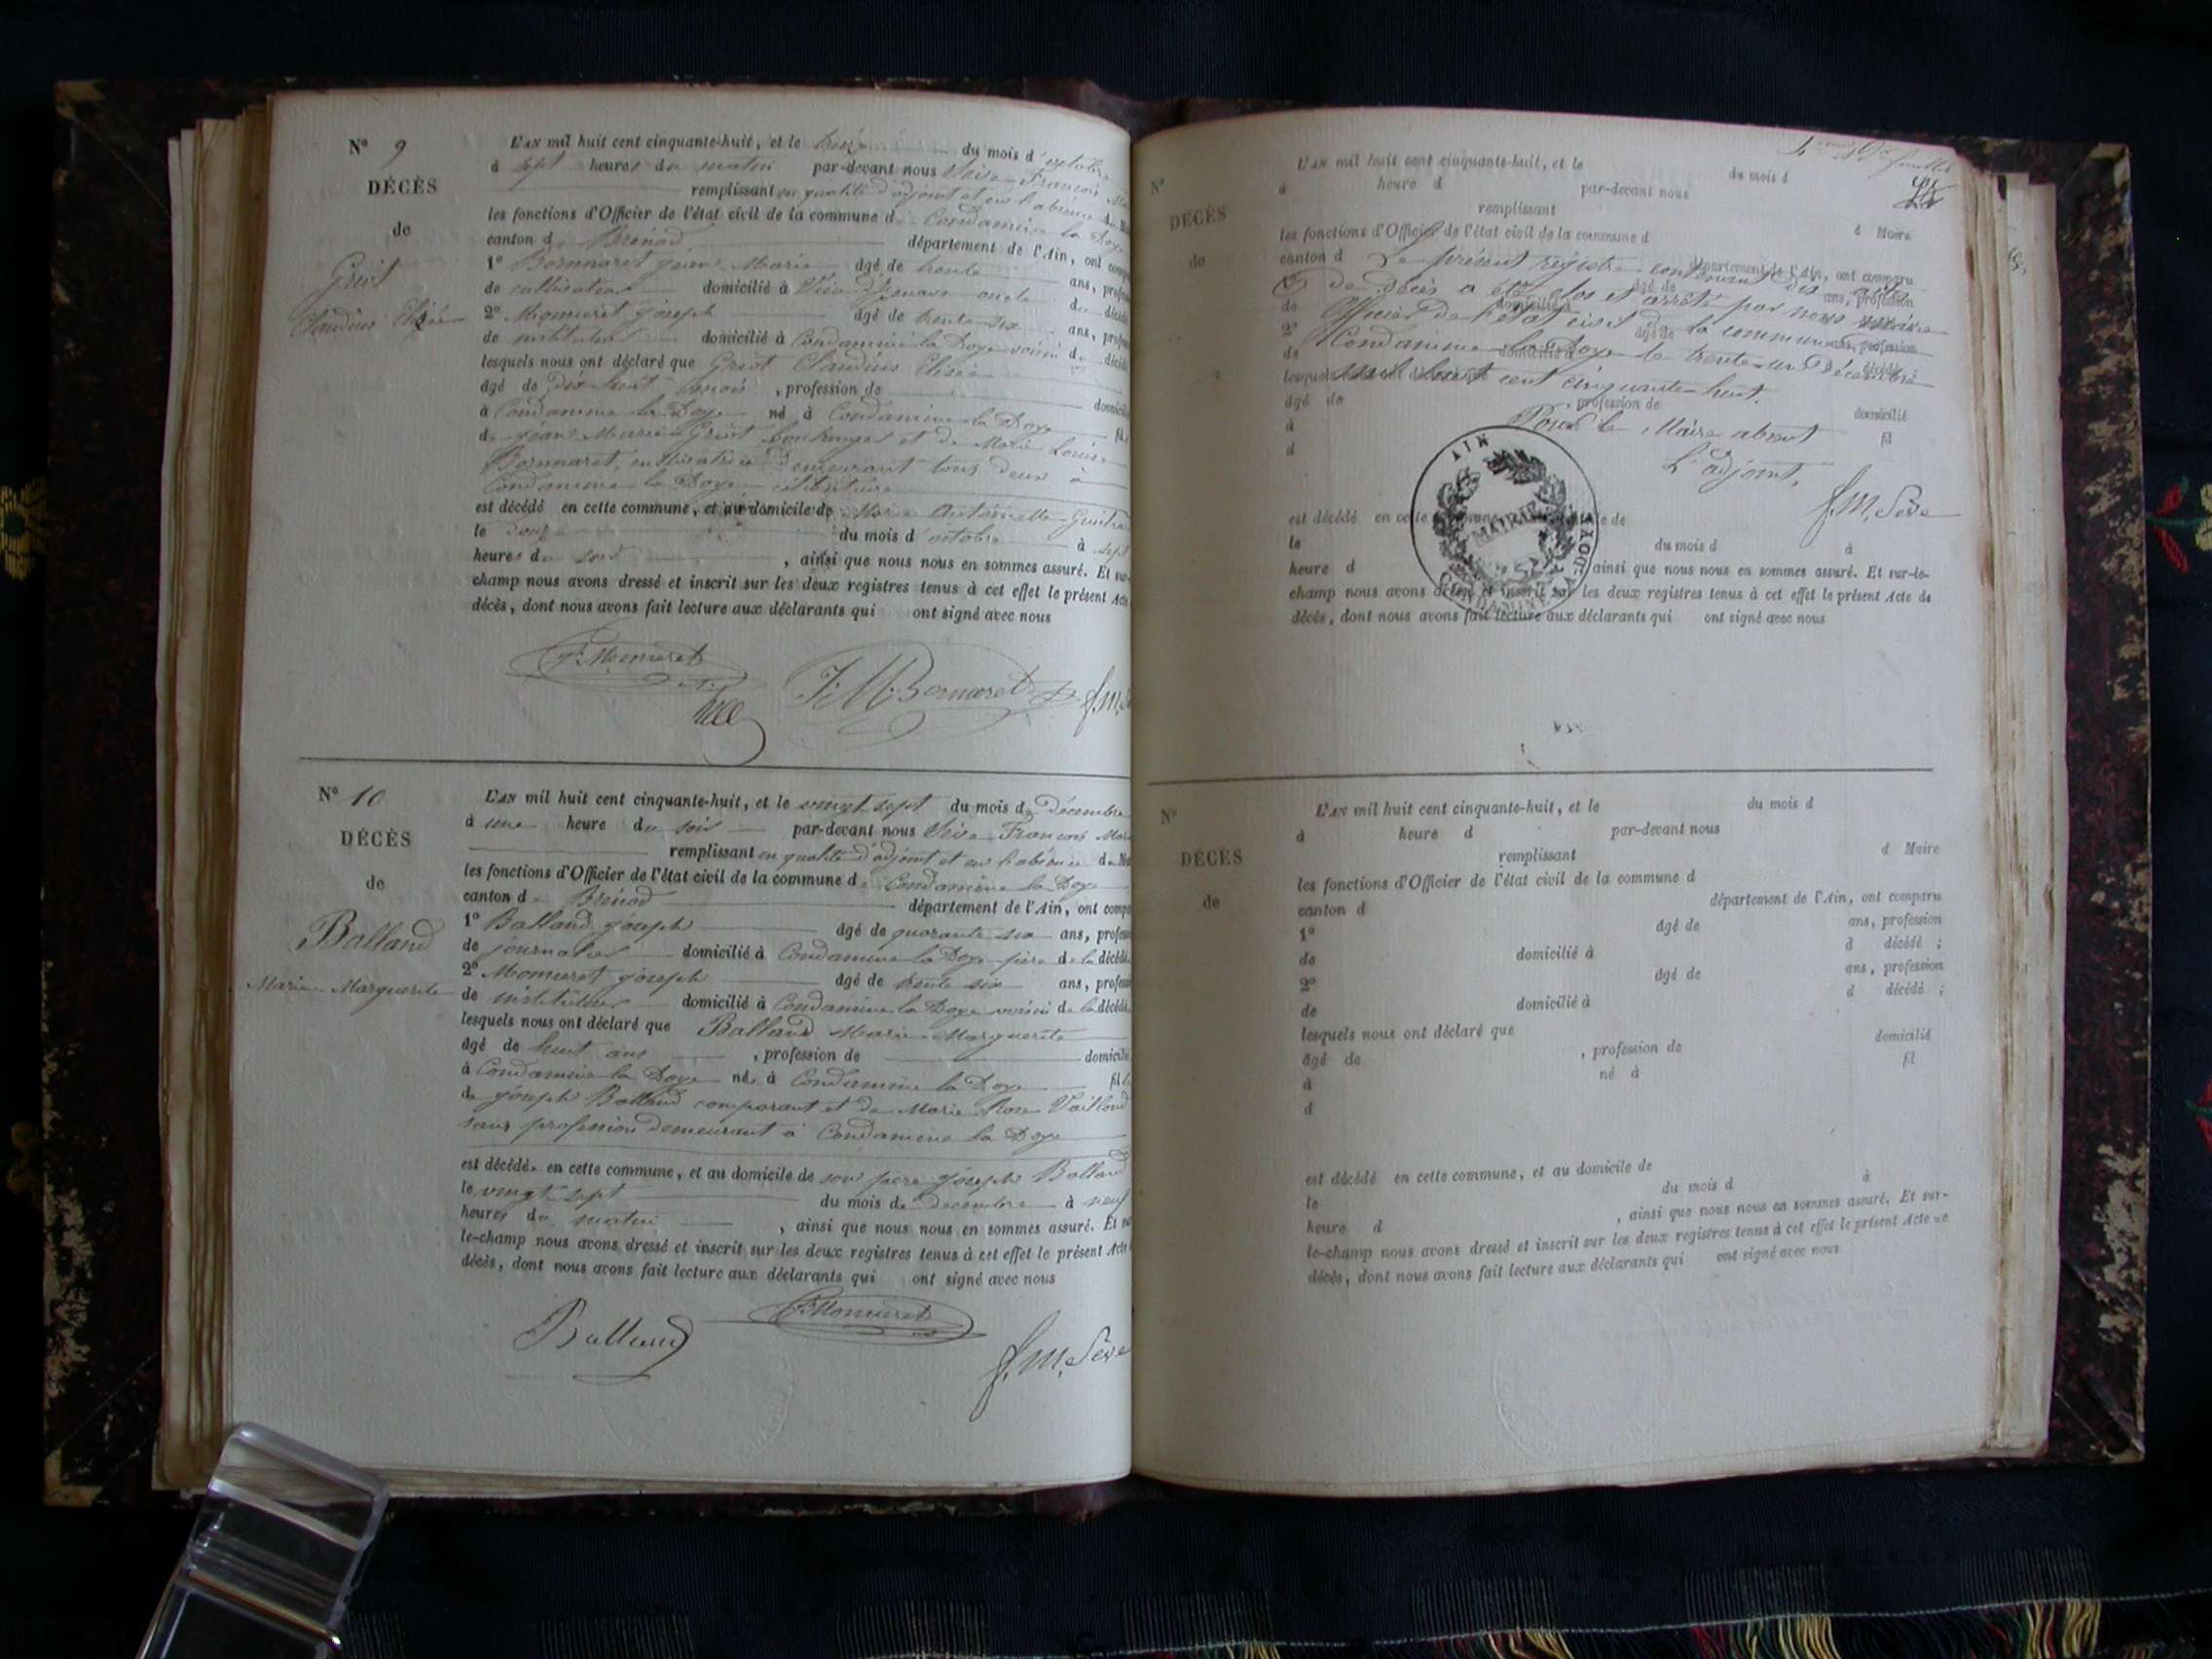 N° 9
DÉCÈS
de
Griot
Claudius Elisée
L'AN mil huit cent cinquante-huit, et le treize du mois d'octobre
à sept heures du matin par-devant nous Sève François
remplissant en qualité d'adjoint et en l'absence
les fonctions d'Officier de l'état civil de la commune de Condamine la Doye
canton de Brénod département de l'Ain, ont
1° Bornnaret Jean Marie âgé de trente ans,
de cultivateur domicilié à Vieu d'Izenave oncle du
2° Monneret joseph âgé de trente six ans,
de instituteur domicilié à Condamine la Doye voisin du
lesquels nous ont déclaré que Griot Claudius Elisée
âgé de dix huit mois, profession de
à Condamine la Doye né à Condamine la Doye
de jean Marie Griot boulanger et de Marie Louise
Bornnaret, cultivatrice demeurant tous deux à
Condamine la Doye
est décédé en cette commune, et au domicile de Marie Antoinette
le douze du mois d'octobre à sept
heures du soir, ainsi que nous nous en sommes assuré. Et sur-
champ nous avons dressé et inscrit sur les deux registres tenus à cet effet le présent Acte
décès, dont nous avons fait lecture aux déclarants qui ont signé avec nous
J. Monneret
J. M. Bornnaret
N° 10
DÉCÈS
de
Balland
Marie Marguerite
L'AN mil huit cent cinquante-huit, et le vingt sept du mois de Décembre
à une heure du soir par-devant nous Sève François
remplissant en qualité d'adjoint et en l'absence
les fonctions d'Officier de l'état civil de la commune de Condamine la Doye
canton de Brénod département de l'Ain, ont
1° Balland joseph âgé de quarante six ans,
de journalier domicilié à Condamine la Doye père de la
2° Monneret joseph âgé de trente six ans,
de instituteur domicilié à Condamine la Doye voisin de la
lesquels nous ont déclaré que Balland Marie Marguerite
âgé de huit ans, profession de
à Condamine la Doye née à Condamine la Doye
de joseph Balland comparant et de Marie Rose Vailloud
sans profession demeurant à Condamine la Doye
est décédée en cette commune, et au domicile de son père joseph Balland
le vingt sept du mois de décembre à neuf
heures du matin, ainsi que nous nous en sommes assuré. Et
le-champ nous avons dressé et inscrit sur les deux registres tenus à cet effet le présent Acte
décès, dont nous avons fait lecture aux déclarants qui ont signé avec nous
Balland
J. Monneret
f. m. Sève
N°
DÉCÈS
de
L'AN mil huit cent cinquante-huit, et le du mois d
à heure d par-devant nous
remplissant d Maire
les fonctions d'Officier de l'état civil de la commune d
canton d département de l'Ain, ont comparu
Le présent registre contenant dix actes
De Décès a été clos et arrêté par nous
Officier De l'état civil de la commune
Condamine la Doye le trente un Décembre
mil huit cent cinquante-huit.
Pour le Maire absent
L'adjoint,
f. m. Sève
AIN
MAIRIE
est décédé en cette
le du mois d à
heure d ainsi que nous nous en sommes assuré. Et sur-le-
champ nous avons dressé et inscrit sur les deux registres tenus à cet effet le présent Acte de
décès, dont nous avons fait lecture aux déclarants qui ont signé avec nous
N°
DÉCÈS
de
L'AN mil huit cent cinquante-huit, et le du mois d
à heure d par-devant nous
remplissant d Maire
les fonctions d'Officier de l'état civil de la commune d
canton d département de l'Ain, ont comparu
1° âgé de ans, profession
de domicilié à d décédé ;
2° âgé de ans, profession
de domicilié à d décédé ;
lesquels nous ont déclaré que
âgé de , profession de domicilié
à né à fil
d
est décédé en cette commune, et au domicile de
le du mois d à
heure d , ainsi que nous nous en sommes assuré. Et sur-
le-champ nous avons dressé et inscrit sur les deux registres tenus à cet effet le présent Acte de
décès, dont nous avons fait lecture aux déclarants qui ont signé avec nous